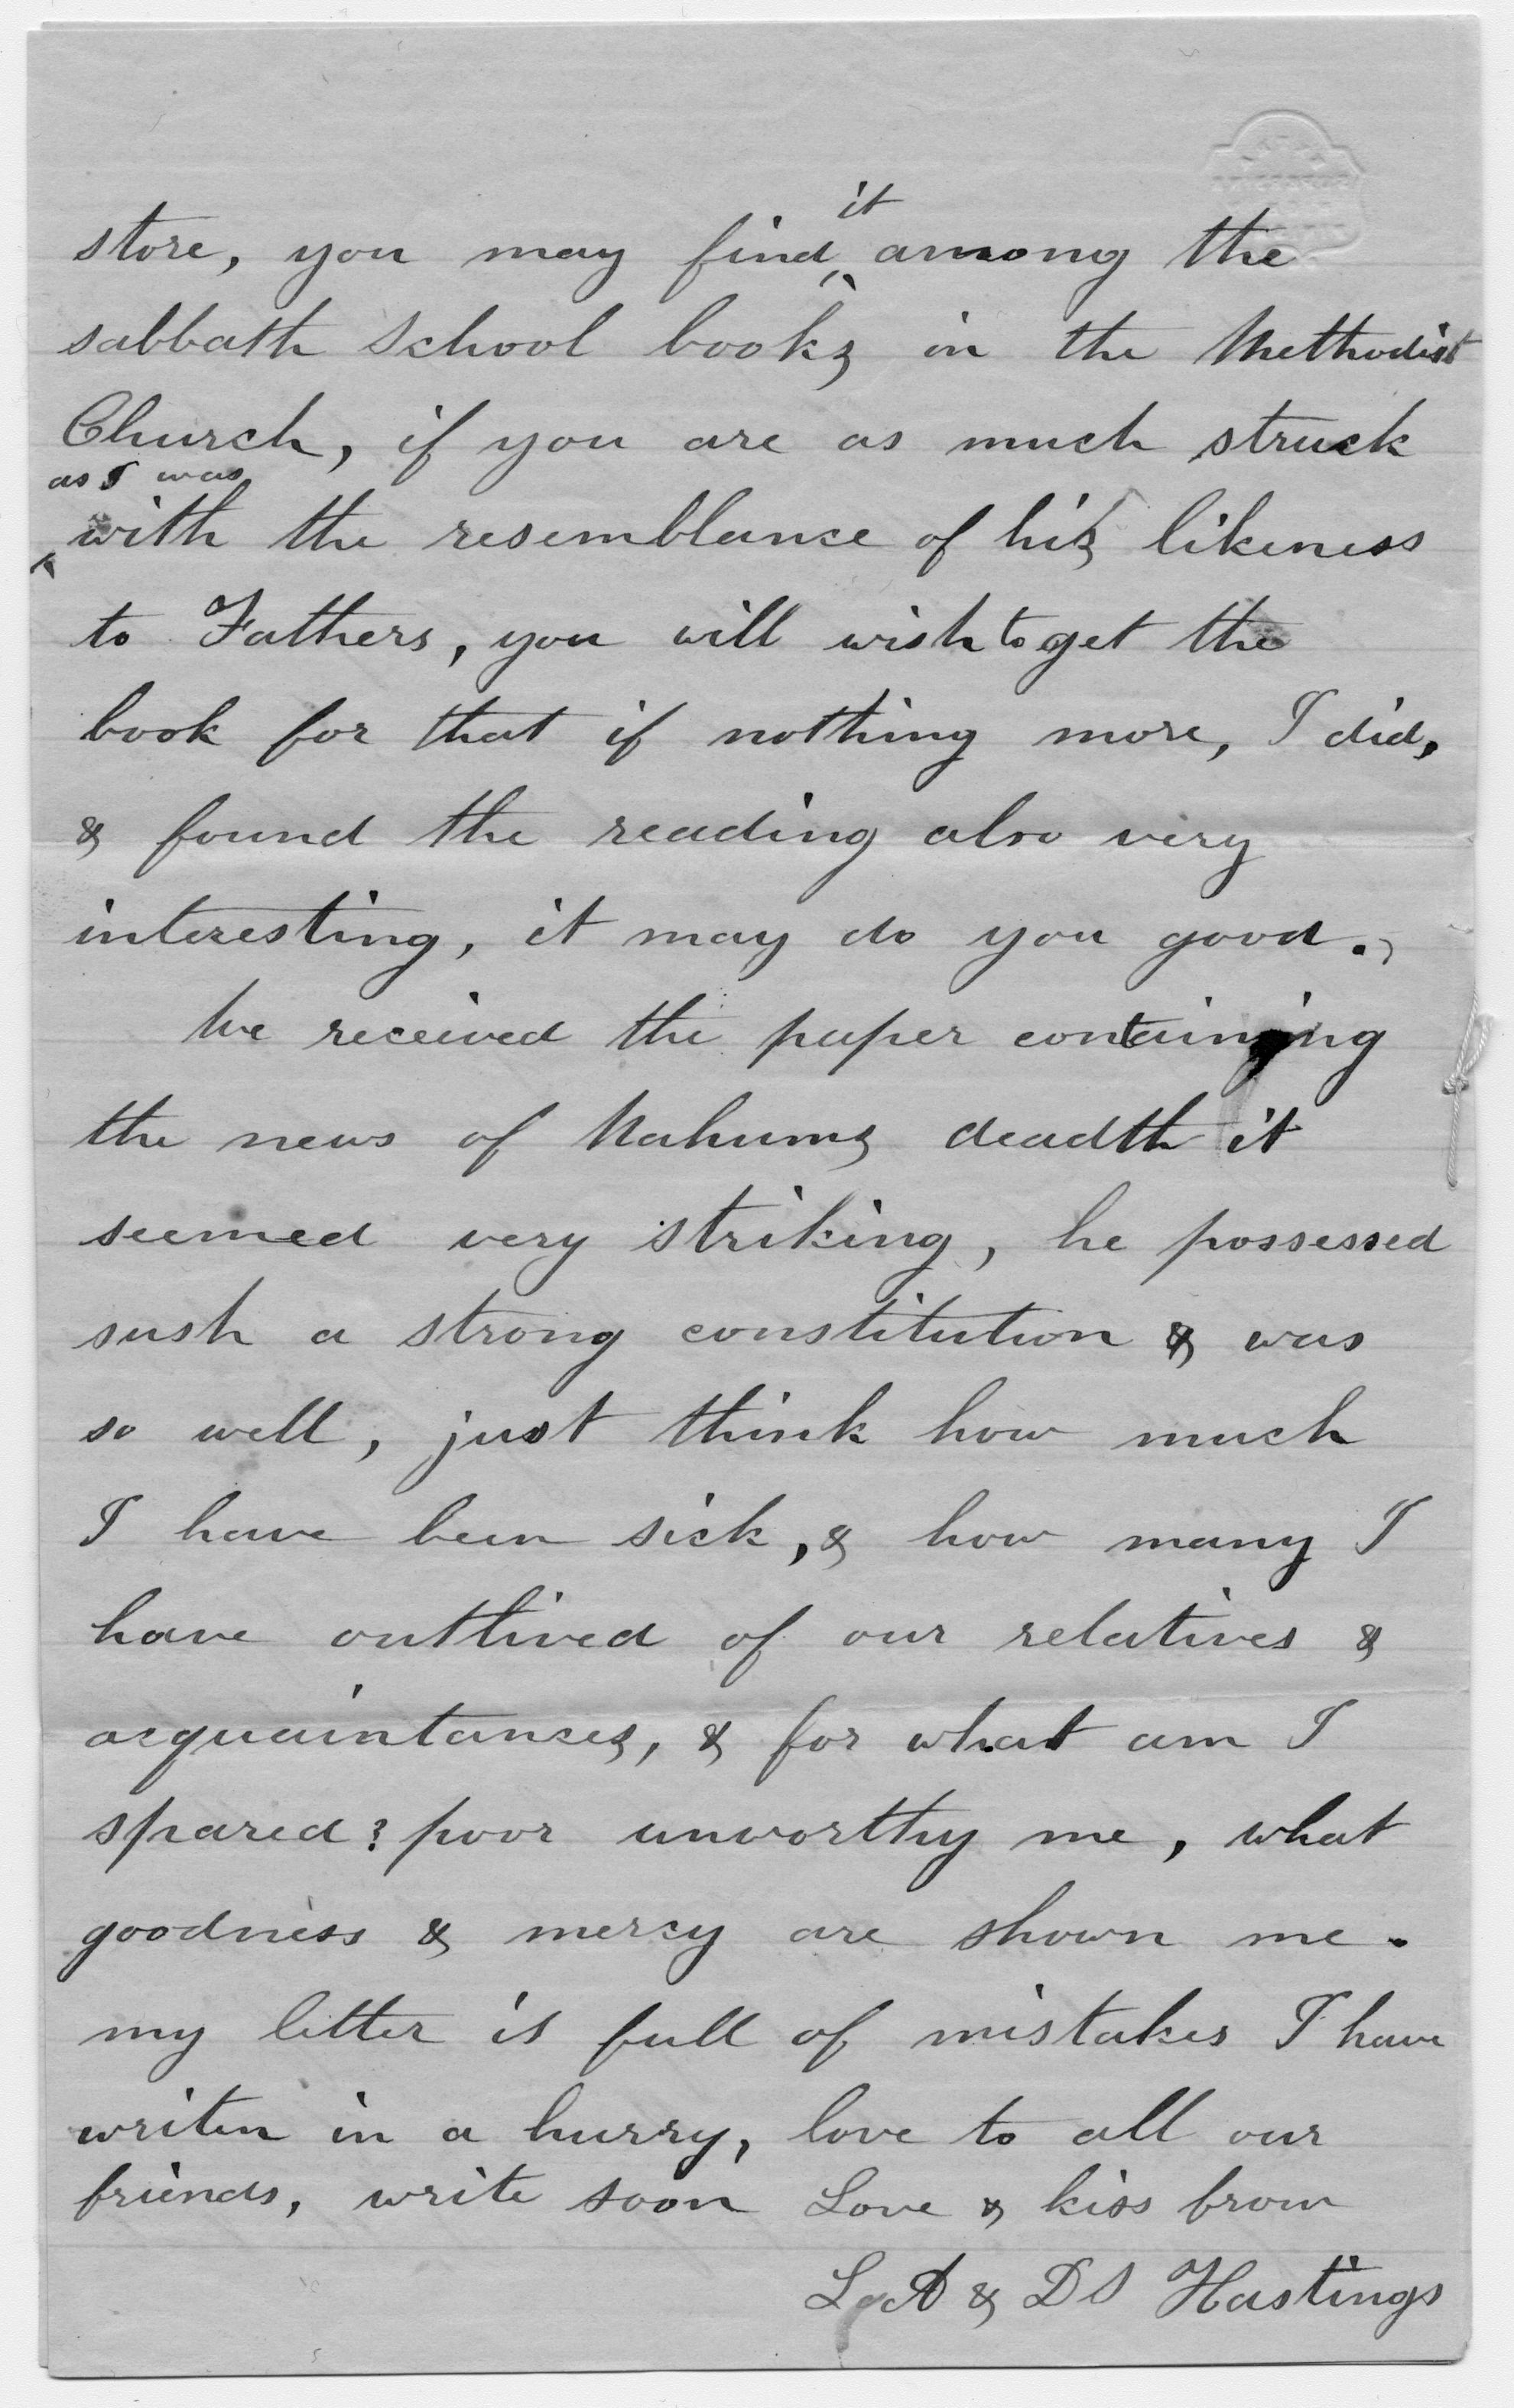 store, you may find it among the
sabbath School books in the Methodist
Church, if you are as much struck
as I was
with the resemblance of his likeness
to Fathers, you will wish to get the
book for that if nothing more, I did,
& found the reading also very
interesting, it may do you good.
We received the paper containing
the news of Nahums deadth it
seemed very striking, he possessed
such a strong constitution & was
so well, just think how much
I have been sick, & how many I
have outlived of our relatives &
acquaintances, & for what am I
spared? poor unworthy me, what
goodness & mercy are shown me.
my letter is full of mistakes I have
writen in a hurry, love to all our
friends, write soon Love & kiss from
L A & D S Hastings